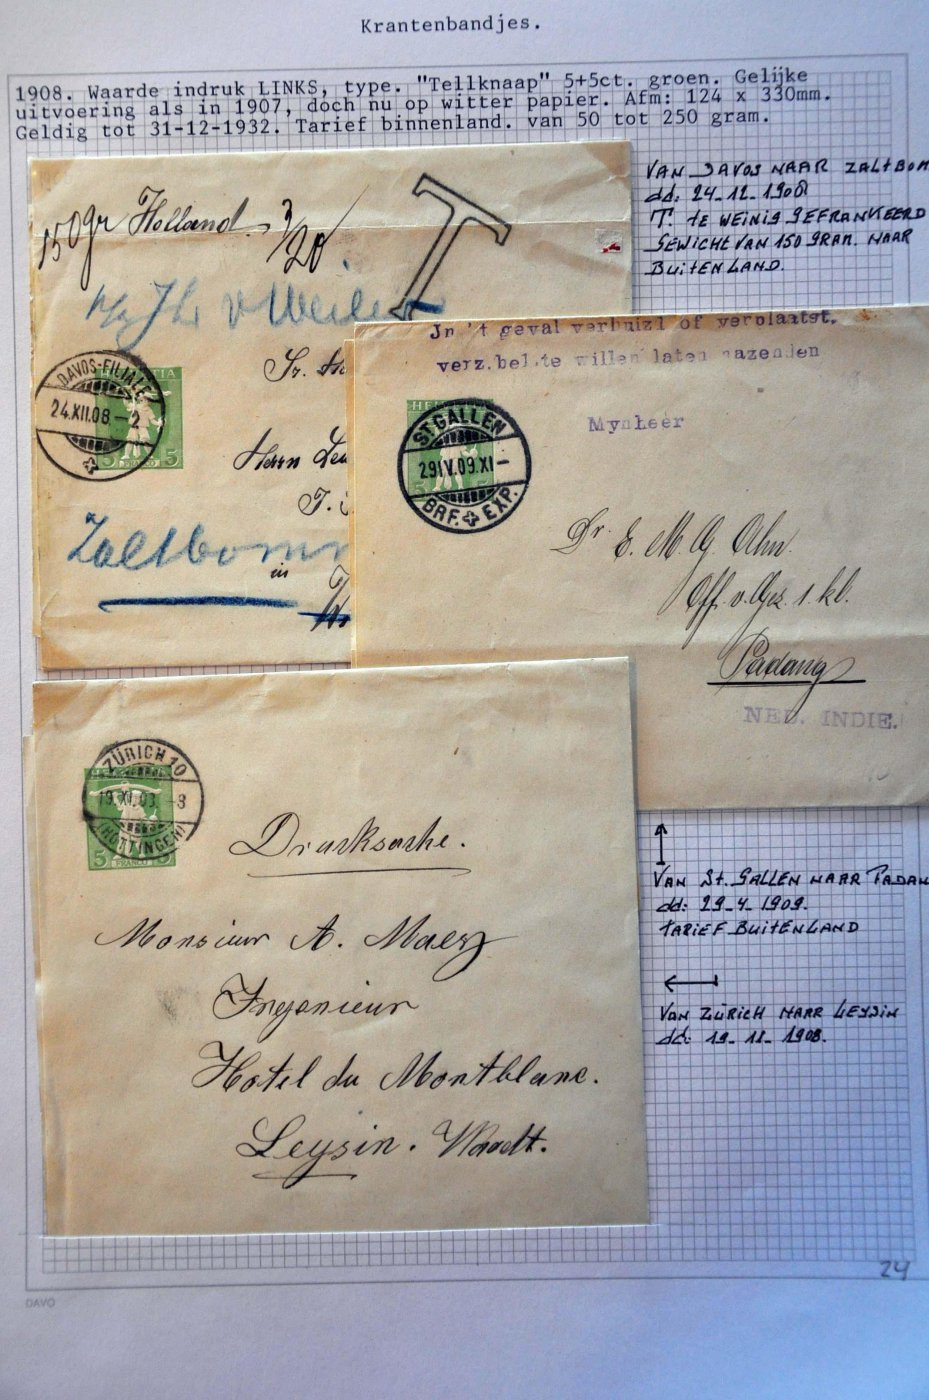 Krantenbandjes.
1908. Waarde indruk LINKS, type. "Tellknaap" 5+5ct. groen. Gelijke
uitvoering als in 1907, doch nu op witter papier. Afm: 124 x 330mm.
Geldig tot 31-12-1932. Tarief binnenland. van 50 tot 250 gram.
VAN DAVOS NAAR ZALTBOM
dd: 24-12-1908
T. TE WEINIG GEFRANKEERD
GEWICHT VAN 150 GRAM. NAAR
BUITENLAND.
150gr Holland
3/20
T
DAVOS-FILIALE
24.XII.08.-2
FRANCO
5 5
Herrn
Zaltbomm
in
Jn 't geval verhuizt of verplaatst.
verz. bel.te willen laten nazenden
Mynheer
HELVETIA
ST. GALLEN
29.IV.09.XI-
BRF. EXP.
Dr. E. M. G. Ahn.
Off. v. Gez. 1. kl.
Padang
NED. INDIE.
ZÜRICH 10
19.XI.08.-8
(HOTTINGEN)
5 FRANCO 5
Drucksache.
Monsieur A. Maey
Ingenieur
Hotel du Montblanc.
Leysin. Waadt.
VAN ST. GALLEN NAAR PADAN
dd: 29-4-1909.
TARIEF BUITENLAND
VAN ZÜRICH NAAR LEYSIN
dd: 19-11-1908.
24
DAVO